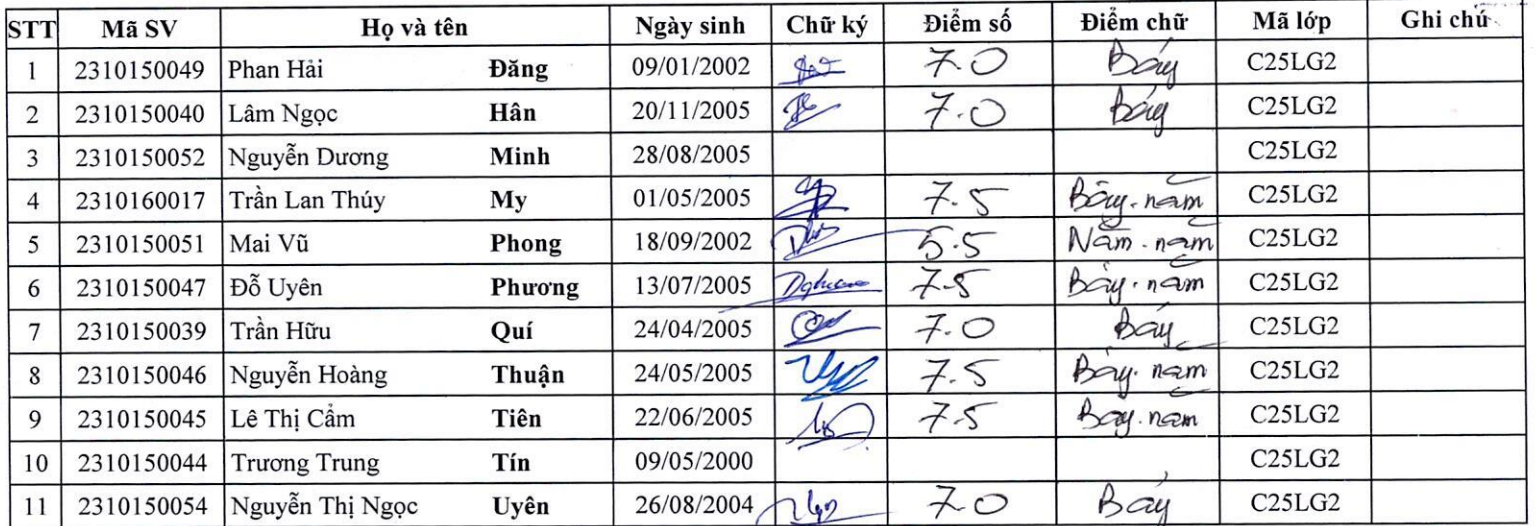 STT Mã SV Họ và tên Ngày sinh Chữ ký Điểm số Điểm chữ Mã lớp Ghi chú
1 2310150049 Phan Hải Đăng 09/01/2002 7.0 Bảy C25LG2
2 2310150040 Lâm Ngọc Hân 20/11/2005 7.0 Bảy C25LG2
3 2310150052 Nguyễn Dương Minh 28/08/2005 C25LG2
4 2310160017 Trần Lan Thúy My 01/05/2005 7.5 Bảy.năm C25LG2
5 2310150051 Mai Vũ Phong 18/09/2002 5.5 Năm.năm C25LG2
6 2310150047 Đỗ Uyên Phương 13/07/2005 7.5 Bảy.năm C25LG2
7 2310150039 Trần Hữu Quí 24/04/2005 7.0 Bảy C25LG2
8 2310150046 Nguyễn Hoàng Thuận 24/05/2005 7.5 Bảy.năm C25LG2
9 2310150045 Lê Thị Cẩm Tiên 22/06/2005 7.5 Bảy.năm C25LG2
10 2310150044 Trương Trung Tín 09/05/2000 C25LG2
11 2310150054 Nguyễn Thị Ngọc Uyên 26/08/2004 7.0 Bảy C25LG2